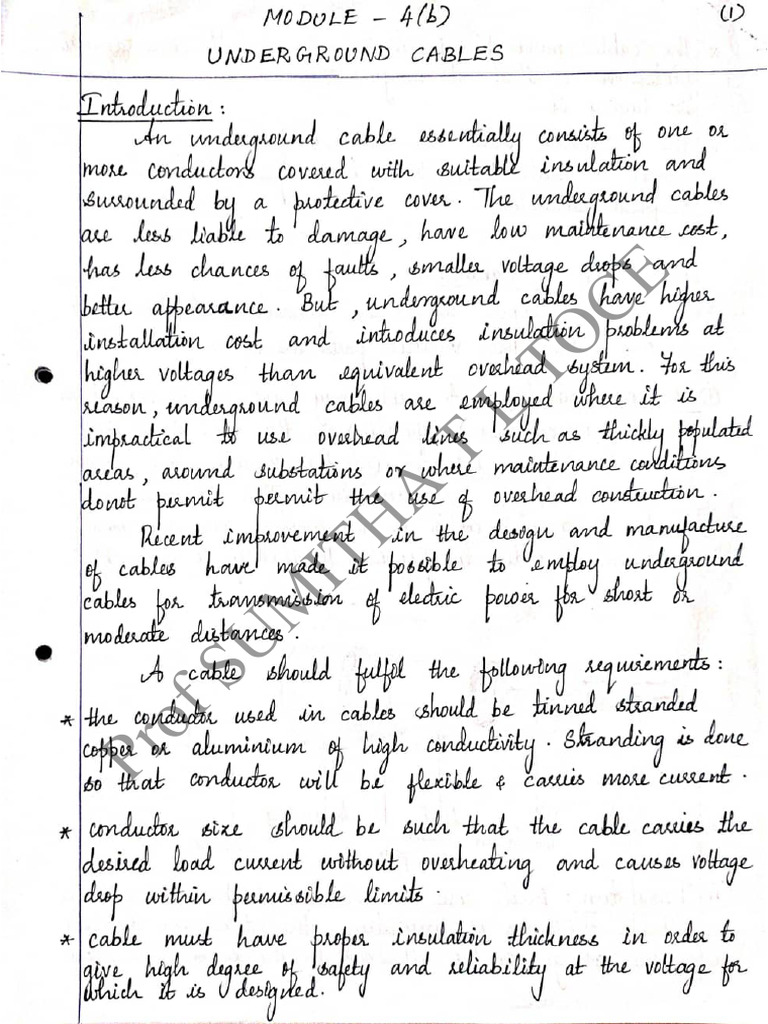 MODULE - 4(b)
(1)
UNDERGROUND CABLES
Introduction :
An underground cable essentially consists of one or
more conductors covered with suitable insulation and
surrounded by a protective cover. The underground cables
are less liable to damage, have low maintenance cost,
has less chances of faults, smaller voltage drops and
better appearance. But, underground cables have higher
installation cost and introduces insulation problems at
higher voltages than equivalent overhead system. For this
reason, underground cables are employed where it is
impractical to use overhead lines such as thickly populated
areas, around substations or where maintenance conditions
donot permit permit the use of overhead construction.
Recent improvement in the design and manufacture
of cables have made it possible to employ underground
cables for transmission of electric power for short or
moderate distances.
A cable should fulfil the following requirements:
* the conductor used in cables should be tinned stranded
copper or aluminium of high conductivity. Stranding is done
so that conductor will be flexible & carries more current.
* conductor size should be such that the cable carries the
desired load current without overheating and causes voltage
drop within permissible limits.
* cable must have proper insulation thickness in order to
give high degree of safety and reliability at the voltage for
which it is designed.
Prof SUMITHA T L TOCE